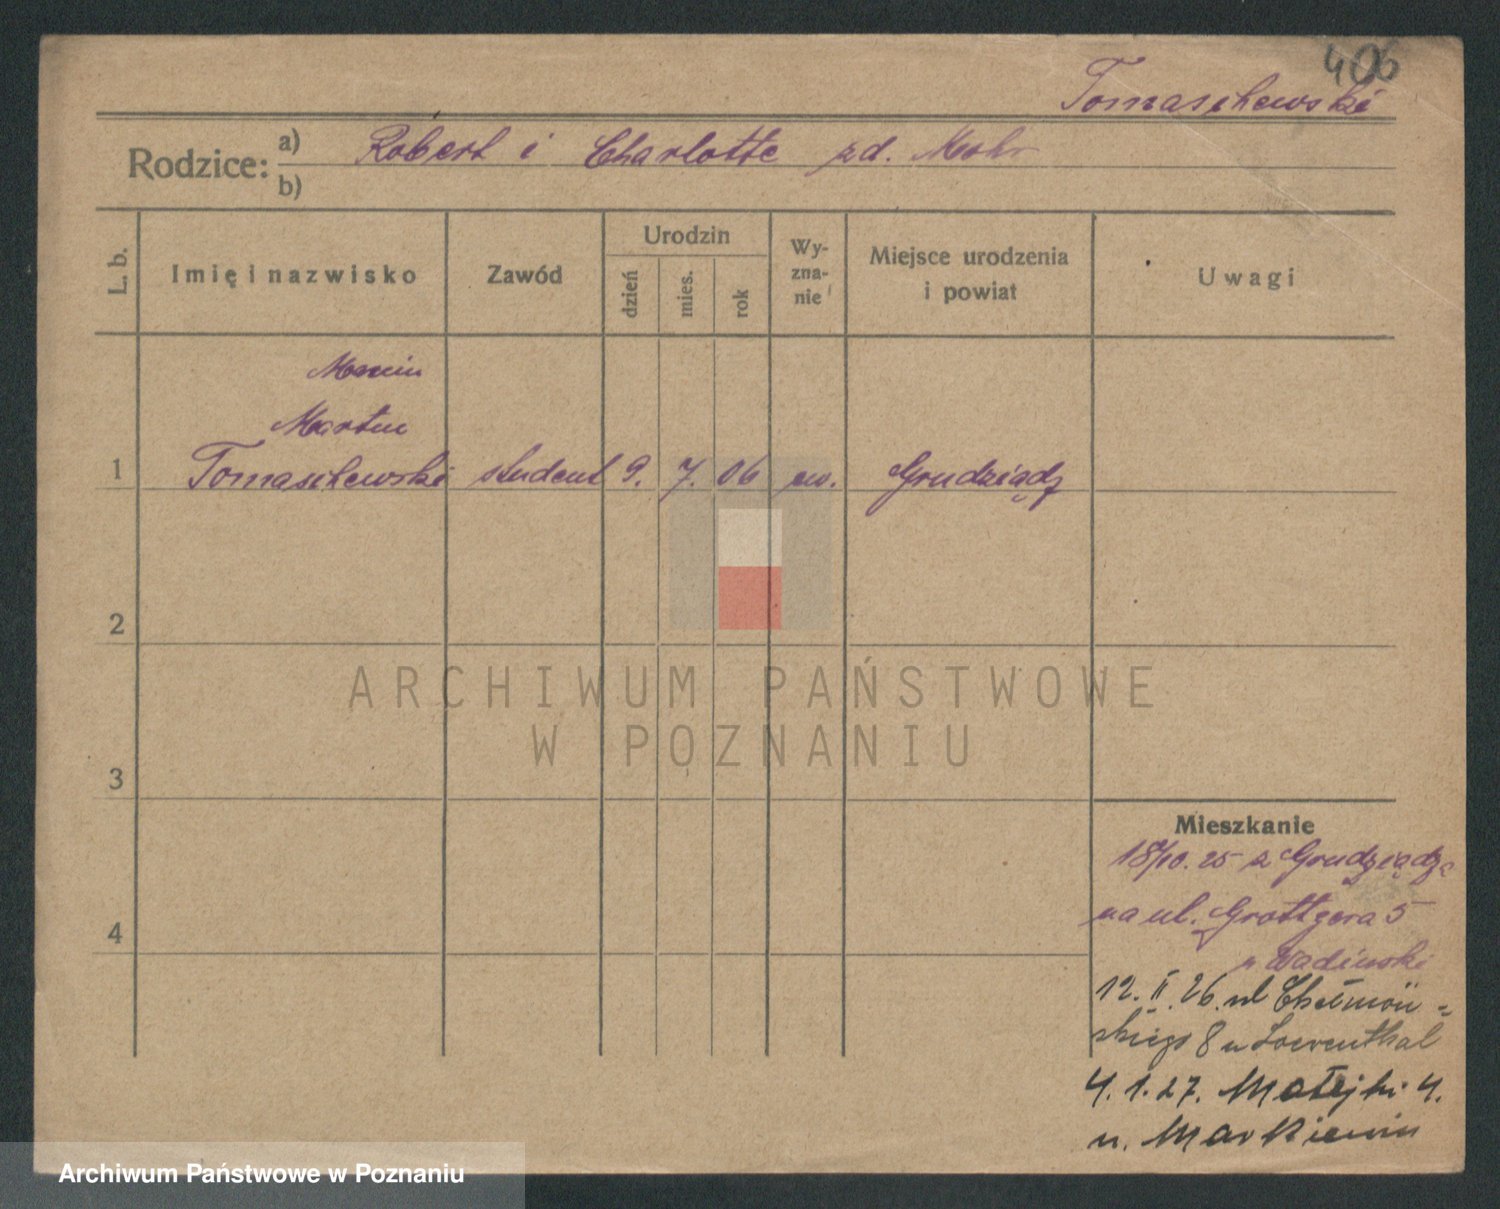 406
Tomaschewski
Rodzice:
a) Robert i Charlotte zd. Mohr
b)
L. b.
Imię i nazwisko
Zawód
Urodzin
dzień
mies.
rok
Wy-
zna-
nie
Miejsce urodzenia
i powiat
Uwagi
Marcin
Martin
1 Tomaschewski student 9. 7. 06 ew. Grudziądz
2
3
4
Mieszkanie
18/10. 25 z Grudziądza
na ul. Grottgera 5
u
12. II. 26. ul Chełmoń-
skiego 8 u Loewenthal
4. 1. 27. Matejki 4.
u. Markiewicz
ARCHIWUM PAŃSTWOWE
W POZNANIU
Archiwum Państwowe w Poznaniu